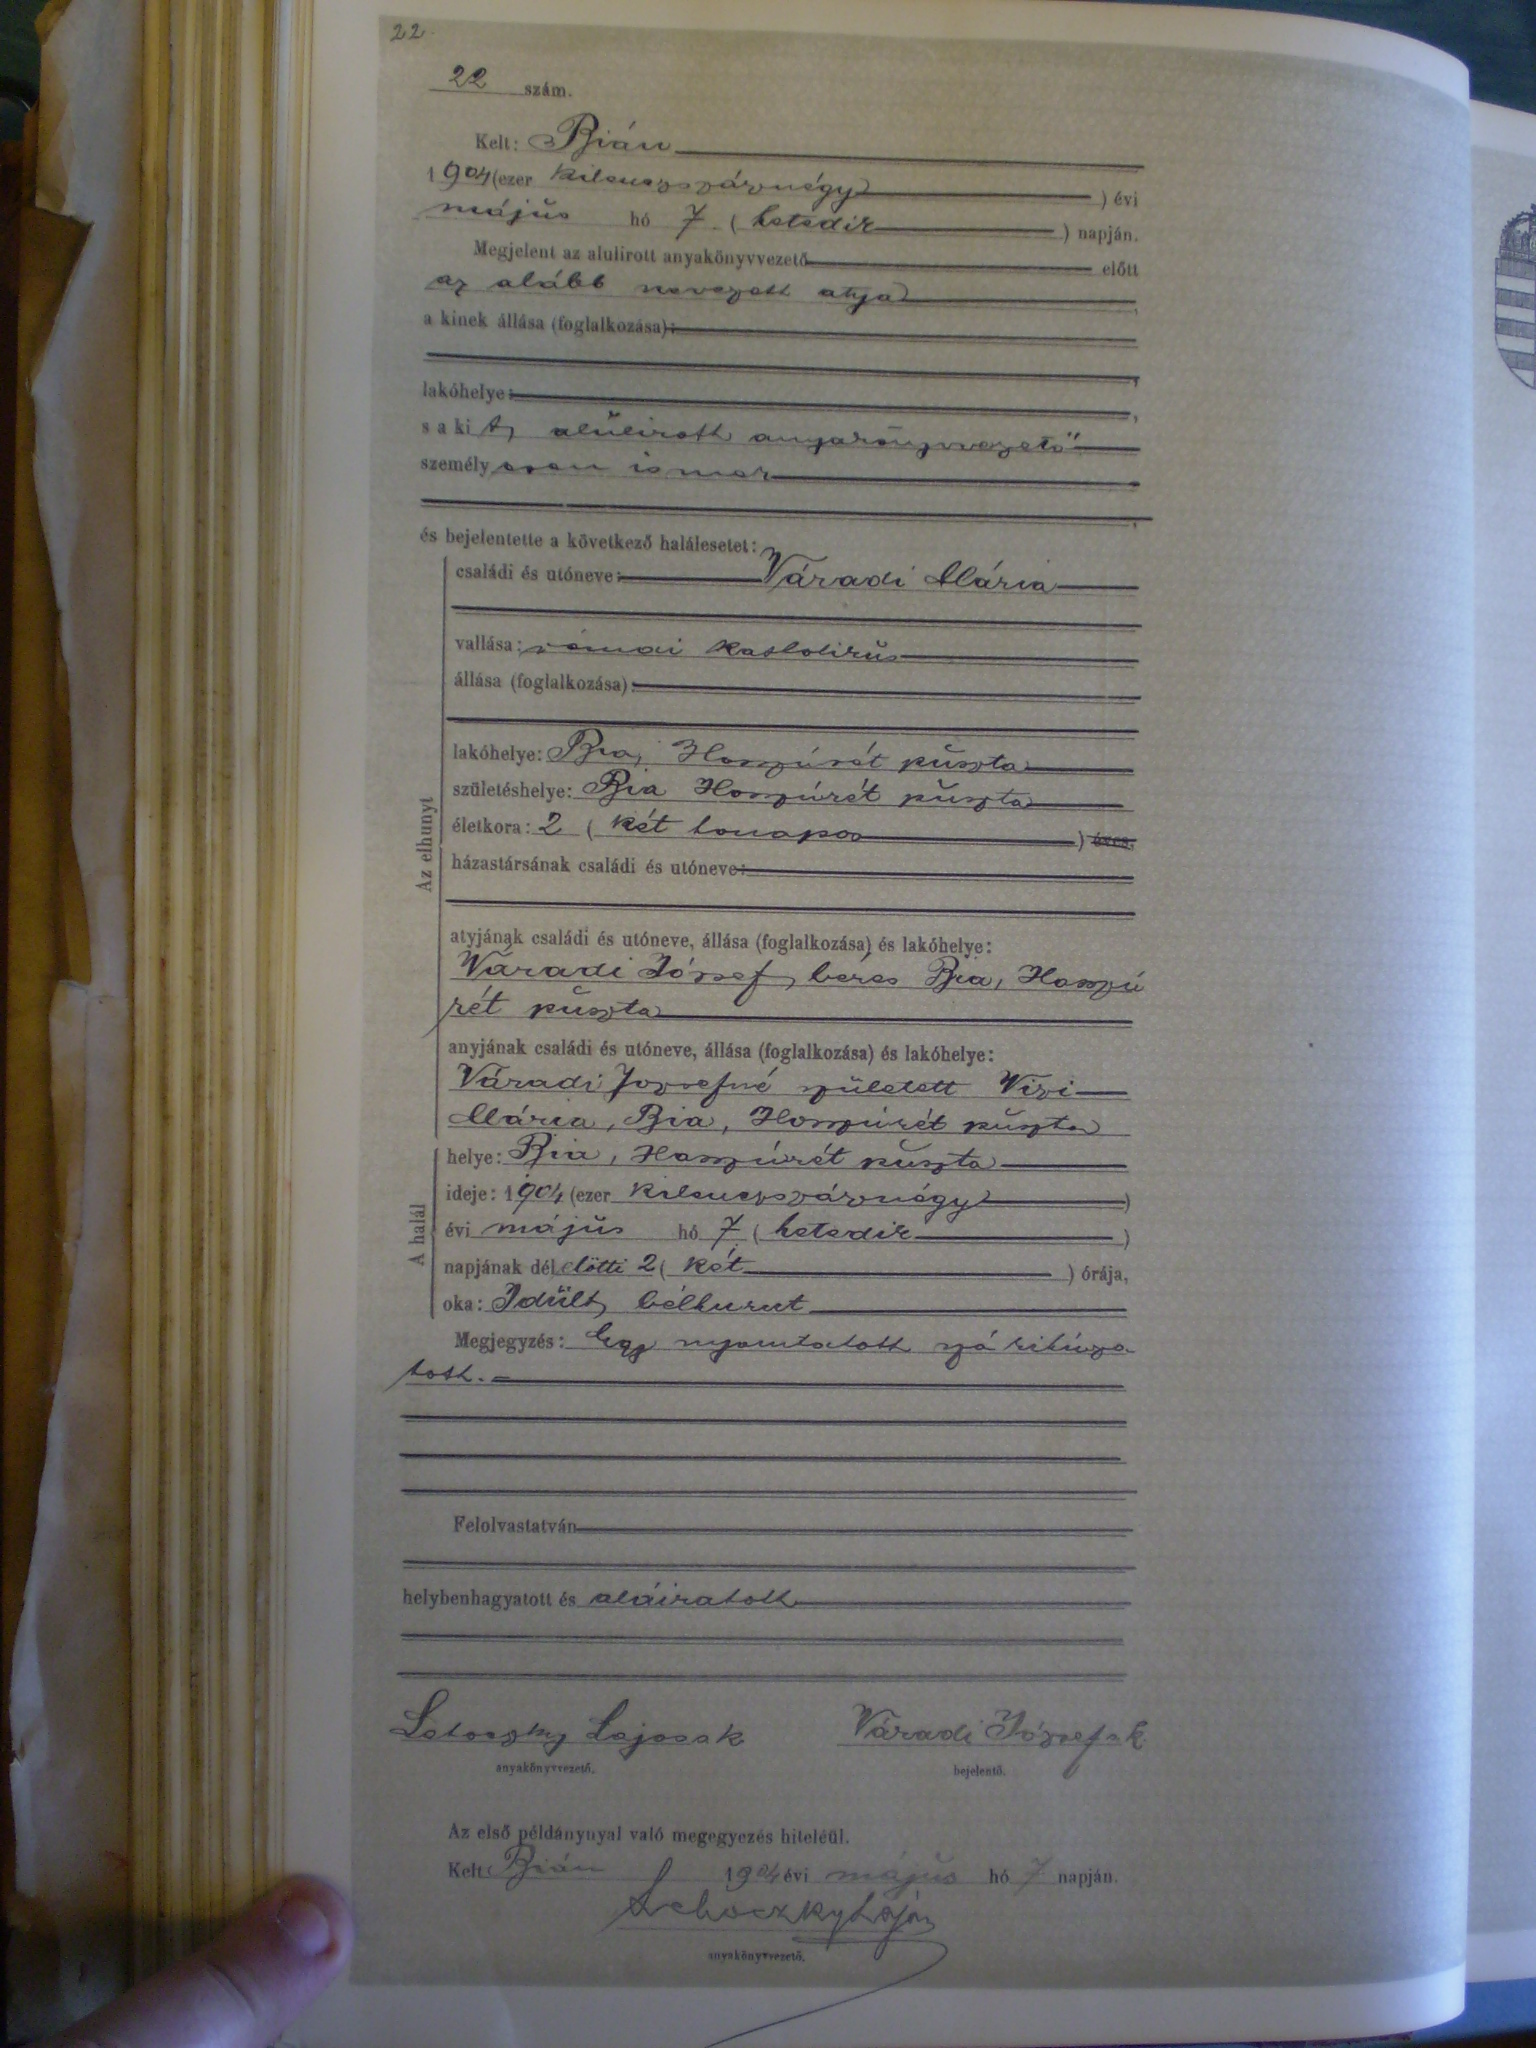 22.
22 szám.
Kelt: Bián
1904 (ezer kilenczszáznégy) évi
május hó 7. (hetedik) napján.
Megjelent az alulirott anyakönyvvezető előtt
az alább nevezett atyja,
a kinek állása (foglalkozása):
lakóhelye:
s a kit, alulirott anyakönyvvezető
személyesen ismer
és bejelentette a következő halálesetet:
családi és utóneve: Váradi Mária
vallása: római katholikus
állása (foglalkozása):
lakóhelye: Bia, Hosszúrét puszta
születéshelye: Bia Hosszúrét puszta
életkora: 2 (két hónapos) éves.
házastársának családi és utóneve:
Az elhunyt
atyjának családi és utóneve, állása (foglalkozása) és lakóhelye:
Váradi József, béres Bia, Hosszú
rét puszta
anyjának családi és utóneve, állása (foglalkozása) és lakóhelye:
Váradi Józsefné született Vizi
Mária, Bia, Hosszúrét puszta
helye: Bia, Hosszúrét puszta
ideje: 1904 (ezer kilenczszáznégy)
évi május hó 7 (hetedik)
A halál
napjának délelőtti 2 (két) órája,
oka: Idült, bélhurut
Megjegyzés: Egy nyomtatott szó kihúza
tott.
Felolvastatván
helybenhagyatott és aláiratott
Lehoczky Lajos sk
Váradi József s.k.
anyakönyvvezető.
bejelentő.
Az első példánynyal való megegyezés hiteléül.
Kelt Bián 1904 évi május hó 7 napján.
Lehoczky Lajos
anyakönyvvezető.